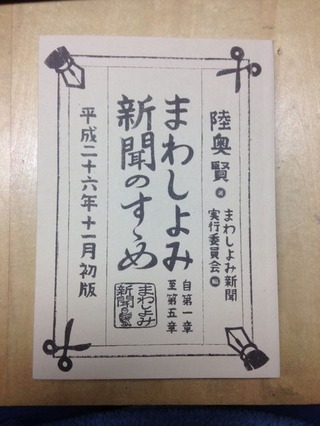 陸奥賢著
まわしよみ新聞
実行委員会編
まわしよみ
新聞のすゝめ
自第一章
至第五章
まわしよみ
新聞
平成二十六年十一月初版